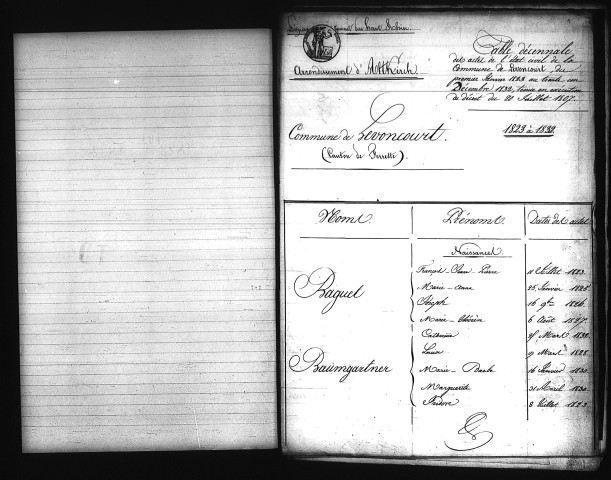 Arrondissement d'Altkirch
Commune de Levoncourt.
(Canton de Ferrette).
Table décennale
des actes de l'état civil de la
Commune de Levoncourt, du
premier Janvier 1823 au trente un
Décembre 1832, tenue en exécution
du décret du 20 Juillet 1807.
1823 à 1832.
Noms Prénoms Dates des actes
Naissances
Baguet
François-Jean-Pierre 11 Juillet 1823.
Marie-Anne 25 Janvier 1825
Joseph 16 9bre 1826.
Marie-Thérèse 6 Août 1827.
Catherine Mars 1832.
Baumgartner
Louise 9 Mars 1828.
Marie-Barbe 16 Janvier 1830.
Marguerite 21 Avril 1830.
Isidore 8 Juillet 1823.